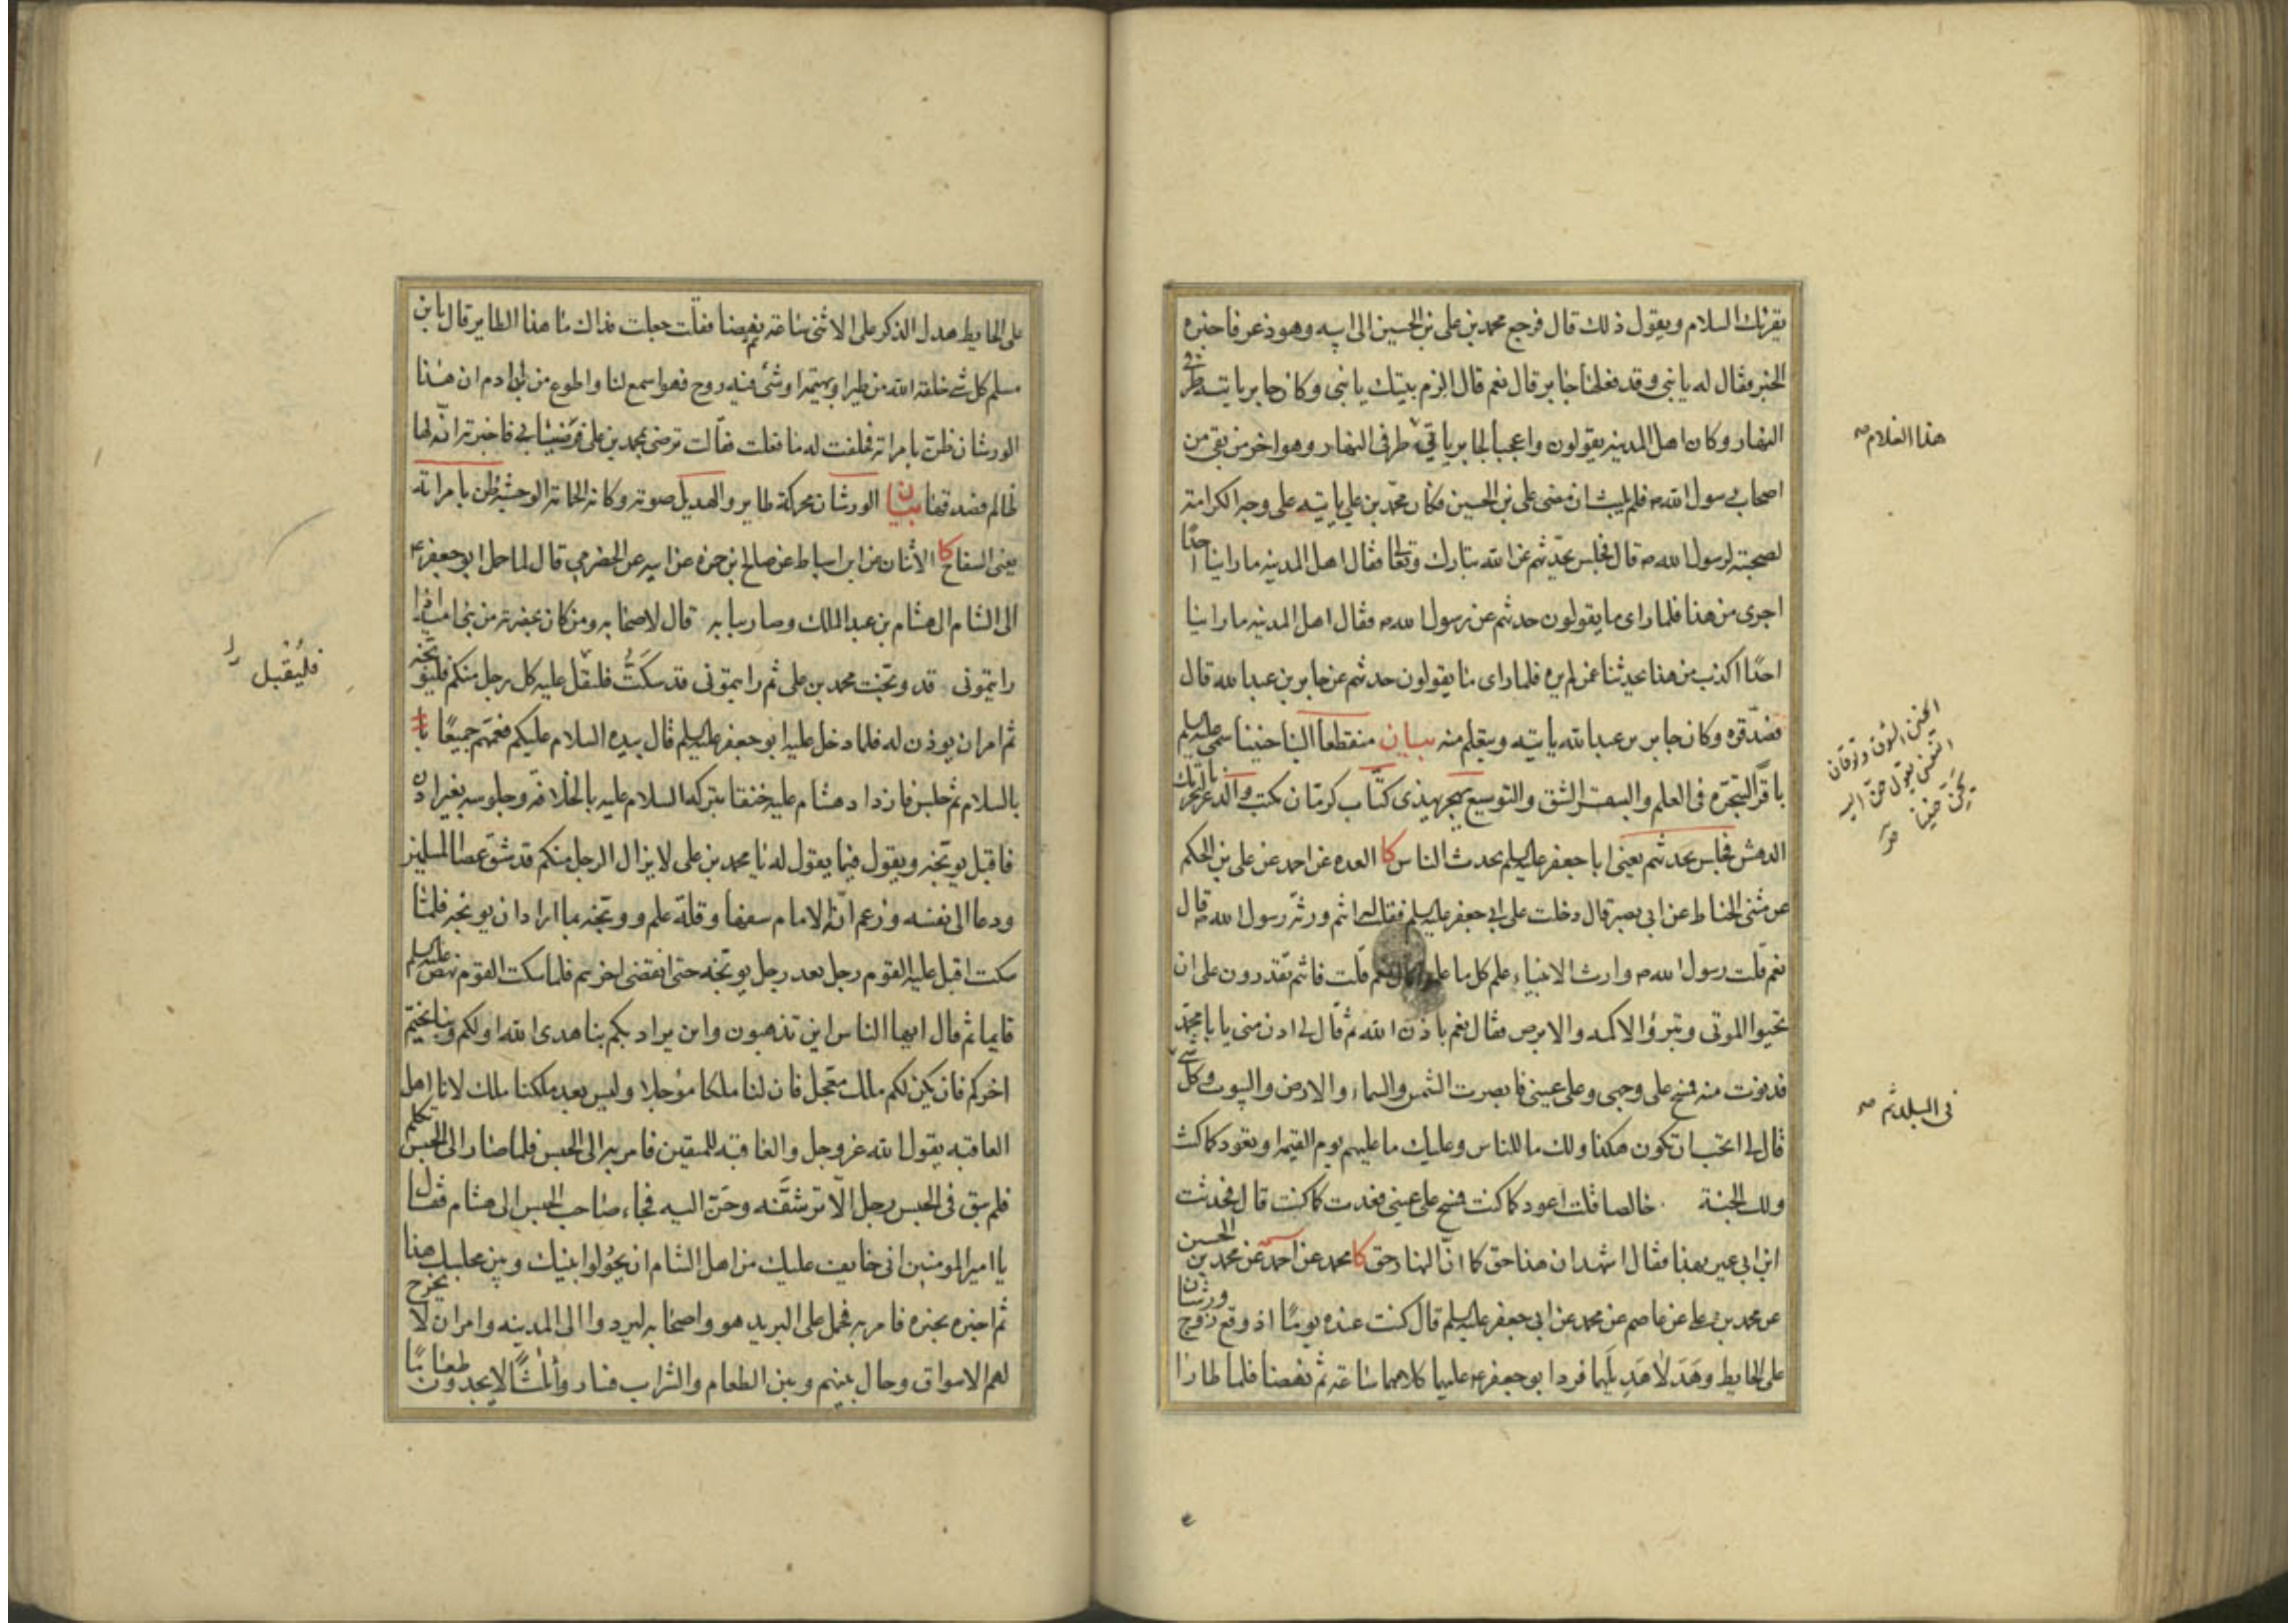 يقرئك السلام ويقول ذلك قال فرجع محمد بن على بن الحسين الى ابيه وهو ذعر فاخبره
الخبر فقال له يا بنى وقد فعلها جابر قال نعم قال الزم بيتك يا بنى وكان جابر ياتيه طرفى
النهار وكان اهل المدينه يقولون واعجبا لجابر ياتى طرفى النهار وهو اخر من بقى من
هذا الغلام صح
اصحاب رسول الله ص فلم يلبث ان مضى على بن الحسين فكان محمد بن على ياتيه على وجه الكرامة
لصحبته لرسول الله ص قال فجلس يحدثهم عن الله تبارك وتعالى فقال اهل المدينه ما راينا احدًا
اجرى من هذا فلما راى ما يقولون حدثهم عن رسول الله ص فقال اهل المدينه ما راينا
احدًا اكذب من هذا يحدثنا عمن لم يره فلما راى ما يقولون حدثهم عن جابر بن عبدا لله قال
فصدقوه وكان جابر بن عبدا لله ياتيه ويتعلم منه بيان منقطعا الينا حنينا سمى عليه السلم
الحنين الشوق وتوقان
النفس يقول حن اليه
يحن حنينا
باقرًا لتبحره فى العلم والبقر الشق والتوسيع يهجر يهذى كتّاب كرمان مكتب والذعر بالتحريك
الدهش فجلس يحدثهم يعنى ابا جعفر عليه السلم يحدث الناس كا العده عن احمد عن على بن الحكم
عن مثنى الحناط عن ابى بصير قال دخلت على ابى جعفر عليه السلم فقلت له انتم ورثة رسول الله ص قال
نعم قلت رسول الله ص وارث الانبياء علم كل ما علموا قال نعم قلت فانتم تقدرون على ان
تحيوا الموتى وتبرؤا الاكمه والابرص فقال نعم باذن الله ثم قال لى ادن منى يا با محمد
فدنوت منه فمسح على وجهى وعلى عينى فابصرت الشمس والسماء والارض والبيوت وكل شى
فى البلد ثم صح
قال لى اتحب ان تكون هكذا ولك ما للناس وعليك ما عليهم يوم القيمه او تعود كما كنت
ولك الجنة خالصا قلت اعود كما كنت فمسح على عينى فعدت كما كنت قال فحدثت
ابن ابى عمير بهذا فقال اشهد ان هذا حق كما ان النهار حق كا محمد عن احمد عن محمد بن الحسين
عن محمد بن على عن عاصم عن محمد عن ابى جعفر عليه السلم قال كنت عنده يومًا اذ وقع زوج ورشان
على الحايط وهدلا هديلهما فرد ابو جعفر ع عليهما كلامهما ساعة ثم نهضا فلما طارا
على الحايط هدل الذكر على الانثى ساعة ثم نهضا فقلت جعلت فداك ما هذا الطاير قال يا بن
مسلم كل شى خلقه الله من طير او بهيمه او شئ فيه روح فهو اسمع لنا واطوع من ابن ادم ان هذا
الورشان ظن بامراته فحلفت له ما فعلت فقالت ترضى بمحمد بن على فرضيا بى فاخبرته انه لها
ظالم فصدقها بيان الورشان محركة طاير والهديل صوته وكانه الحمامة الوحشية ظن بامراته
يعنى السفاح كا الاثنان عن ابن اسباط عن صالح بن حمزه عن ابيه عن الحضرمى قال لما حمل ابو جعفر ع
الى الشام الى هشام بن عبد الملك وصار ببابه قال لاصحابه ومن كان بحضرته من بنى اميه اذا
رايتمونى قد وبخت محمد بن على ثم رايتمونى قد سكتّ فليقبل عليه كل رجل منكم فليوبخه
فليُقبل
ثم امر ان يوذن له فلما دخل عليه ابو جعفر عليه السلم قال بيده السلام عليكم فعمهم جميعًا
بالسلام ثم جلس فازداد هشام عليه حنقا بتركه السلام عليه بالخلافة وجلوسه بغير اذن
فاقبل يوبخه ويقول فيما يقول له يا محمد بن على لا يزال الرجل منكم قد شق عصا المسلمين
ودعا الى نفسه وزعم انه الامام سفها وقلة علم ووبخه بما اراد ان يوبخه فلما
سكت اقبل عليه القوم رجل بعد رجل يوبخه حتى انقضى اخرهم فلما سكت القوم نهض عليه السلم
قايما ثم قال ايها الناس اين تذهبون واين يراد بكم بنا هدى الله اولكم وبنا يختم
اخركم فان يكن لكم ملك معجل فان لنا ملكا مؤجلا وليس بعد ملكنا ملك لانا اهل
العاقبه يقول الله عز وجل والعاقبه للمتقين فامر به الى الحبس فلما صار الى الحبس تكلم
فلم يبق فى الحبس رجل الّا ترشفه وحنّ اليه فجاء صاحب الحبس الى هشام فقال
يا امير المومنين انى خايف عليك من اهل الشام ان يحولوا بينك وبين مجلسك هذا
ثم اخبره بخبره فامر به فحمل على البريد هو واصحابه ليردوا الى المدينه وامر ان لا يخرج
لهم الاسواق وحال بينهم وبين الطعام والشراب فساروا ثلثًا لا يجدون طعامًا